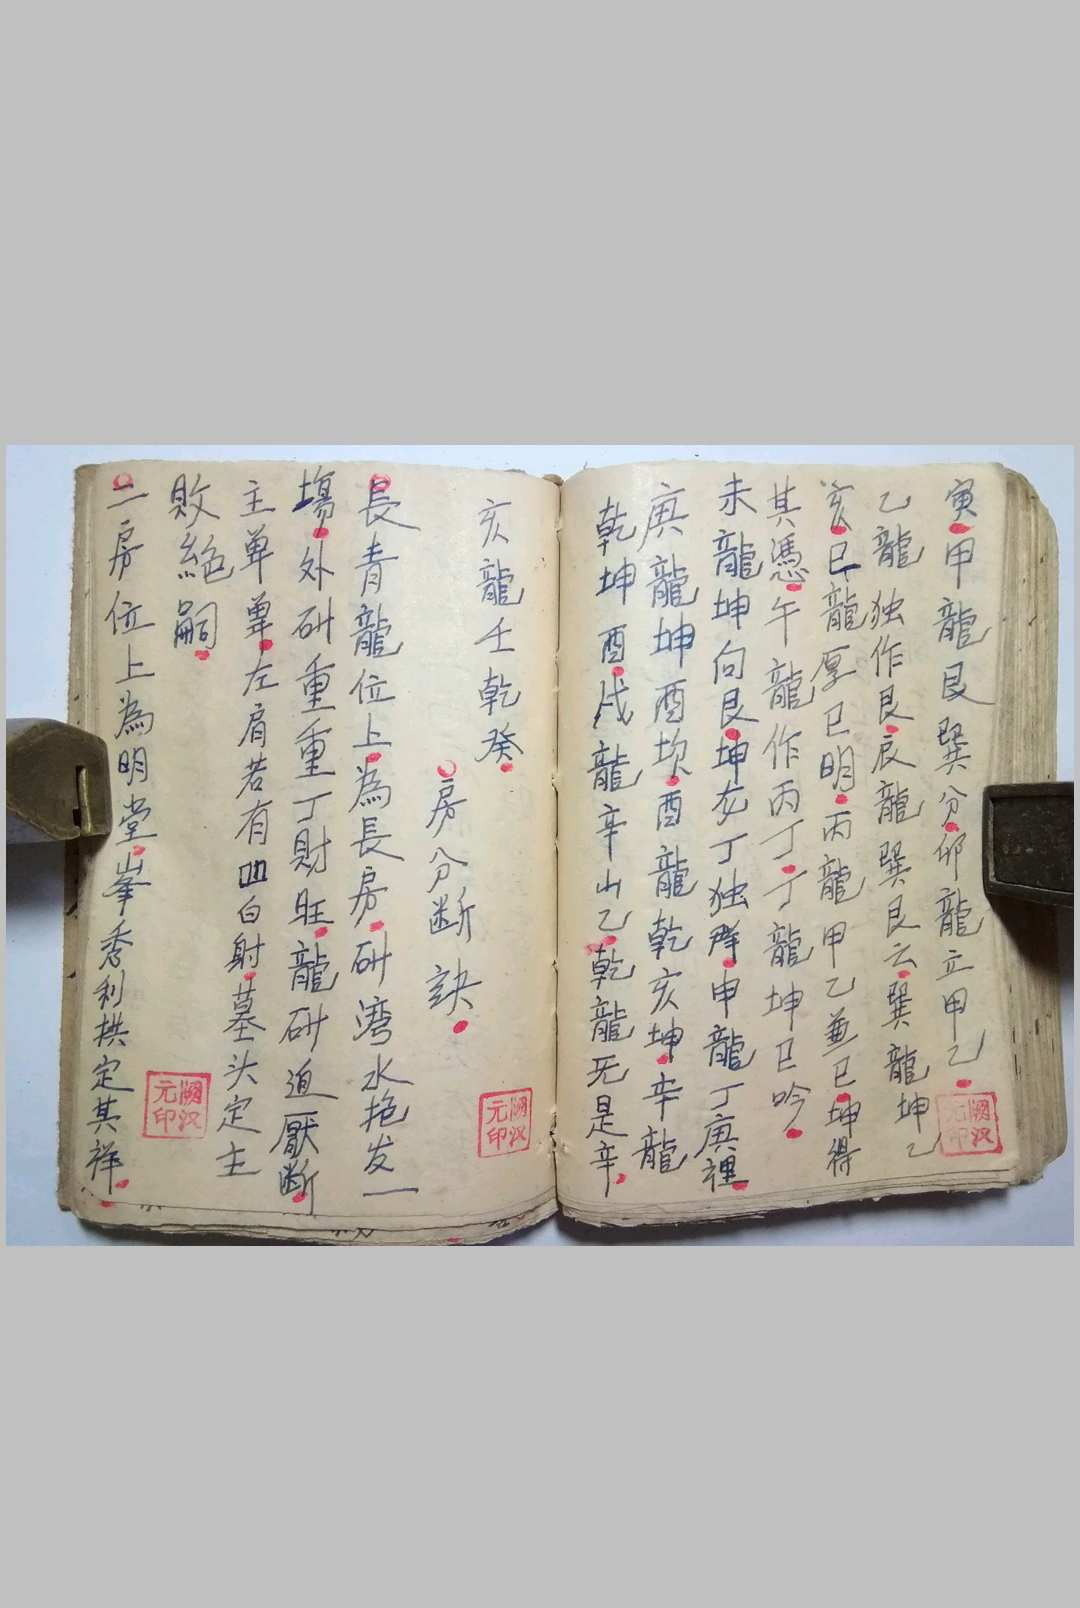 寅甲龍艮巽分卯龍立甲乙
乙龍独作艮辰龍巽艮云巽龍坤乙
亥巳龍厚已明丙龍甲乙兼巳坤得
其憑午龍作丙丁丁龍坤巳吟
未龍坤向艮坤友丁独群申龍丁庚裡
庚龍坤酉坎酉龍乾亥坤辛龍
乾坤酉戌龍辛山乙乾龍旡是辛
亥龍壬乾癸
房分断訣
長青龍位上為長房砂湾水抱发一
塲外砂重重丁財旺龍砂迫厭断
主单单左肩若有凹白射墓头定主
敗絶嗣
二房位上為明堂峯秀利拱定其祥
闕汉元印
闕汉元印
闕汉元印